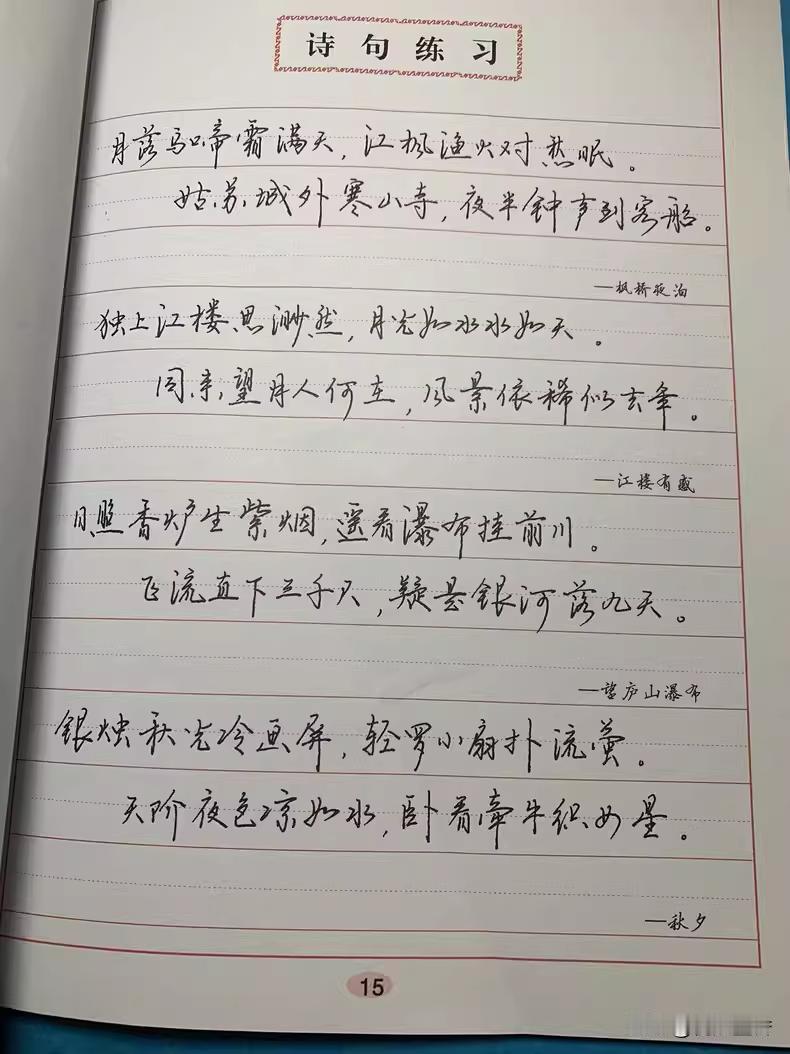 诗句练习
月落乌啼霜满天，江枫渔火对愁眠。
姑苏城外寒山寺，夜半钟声到客船。
—枫桥夜泊
独上江楼思渺然，月光如水水如天。
同来望月人何在，风景依稀似去年。
—江楼有感
日照香炉生紫烟，遥看瀑布挂前川。
飞流直下三千尺，疑是银河落九天。
—望庐山瀑布
银烛秋光冷画屏，轻罗小扇扑流萤。
天阶夜色凉如水，卧看牵牛织女星。
—秋夕
15